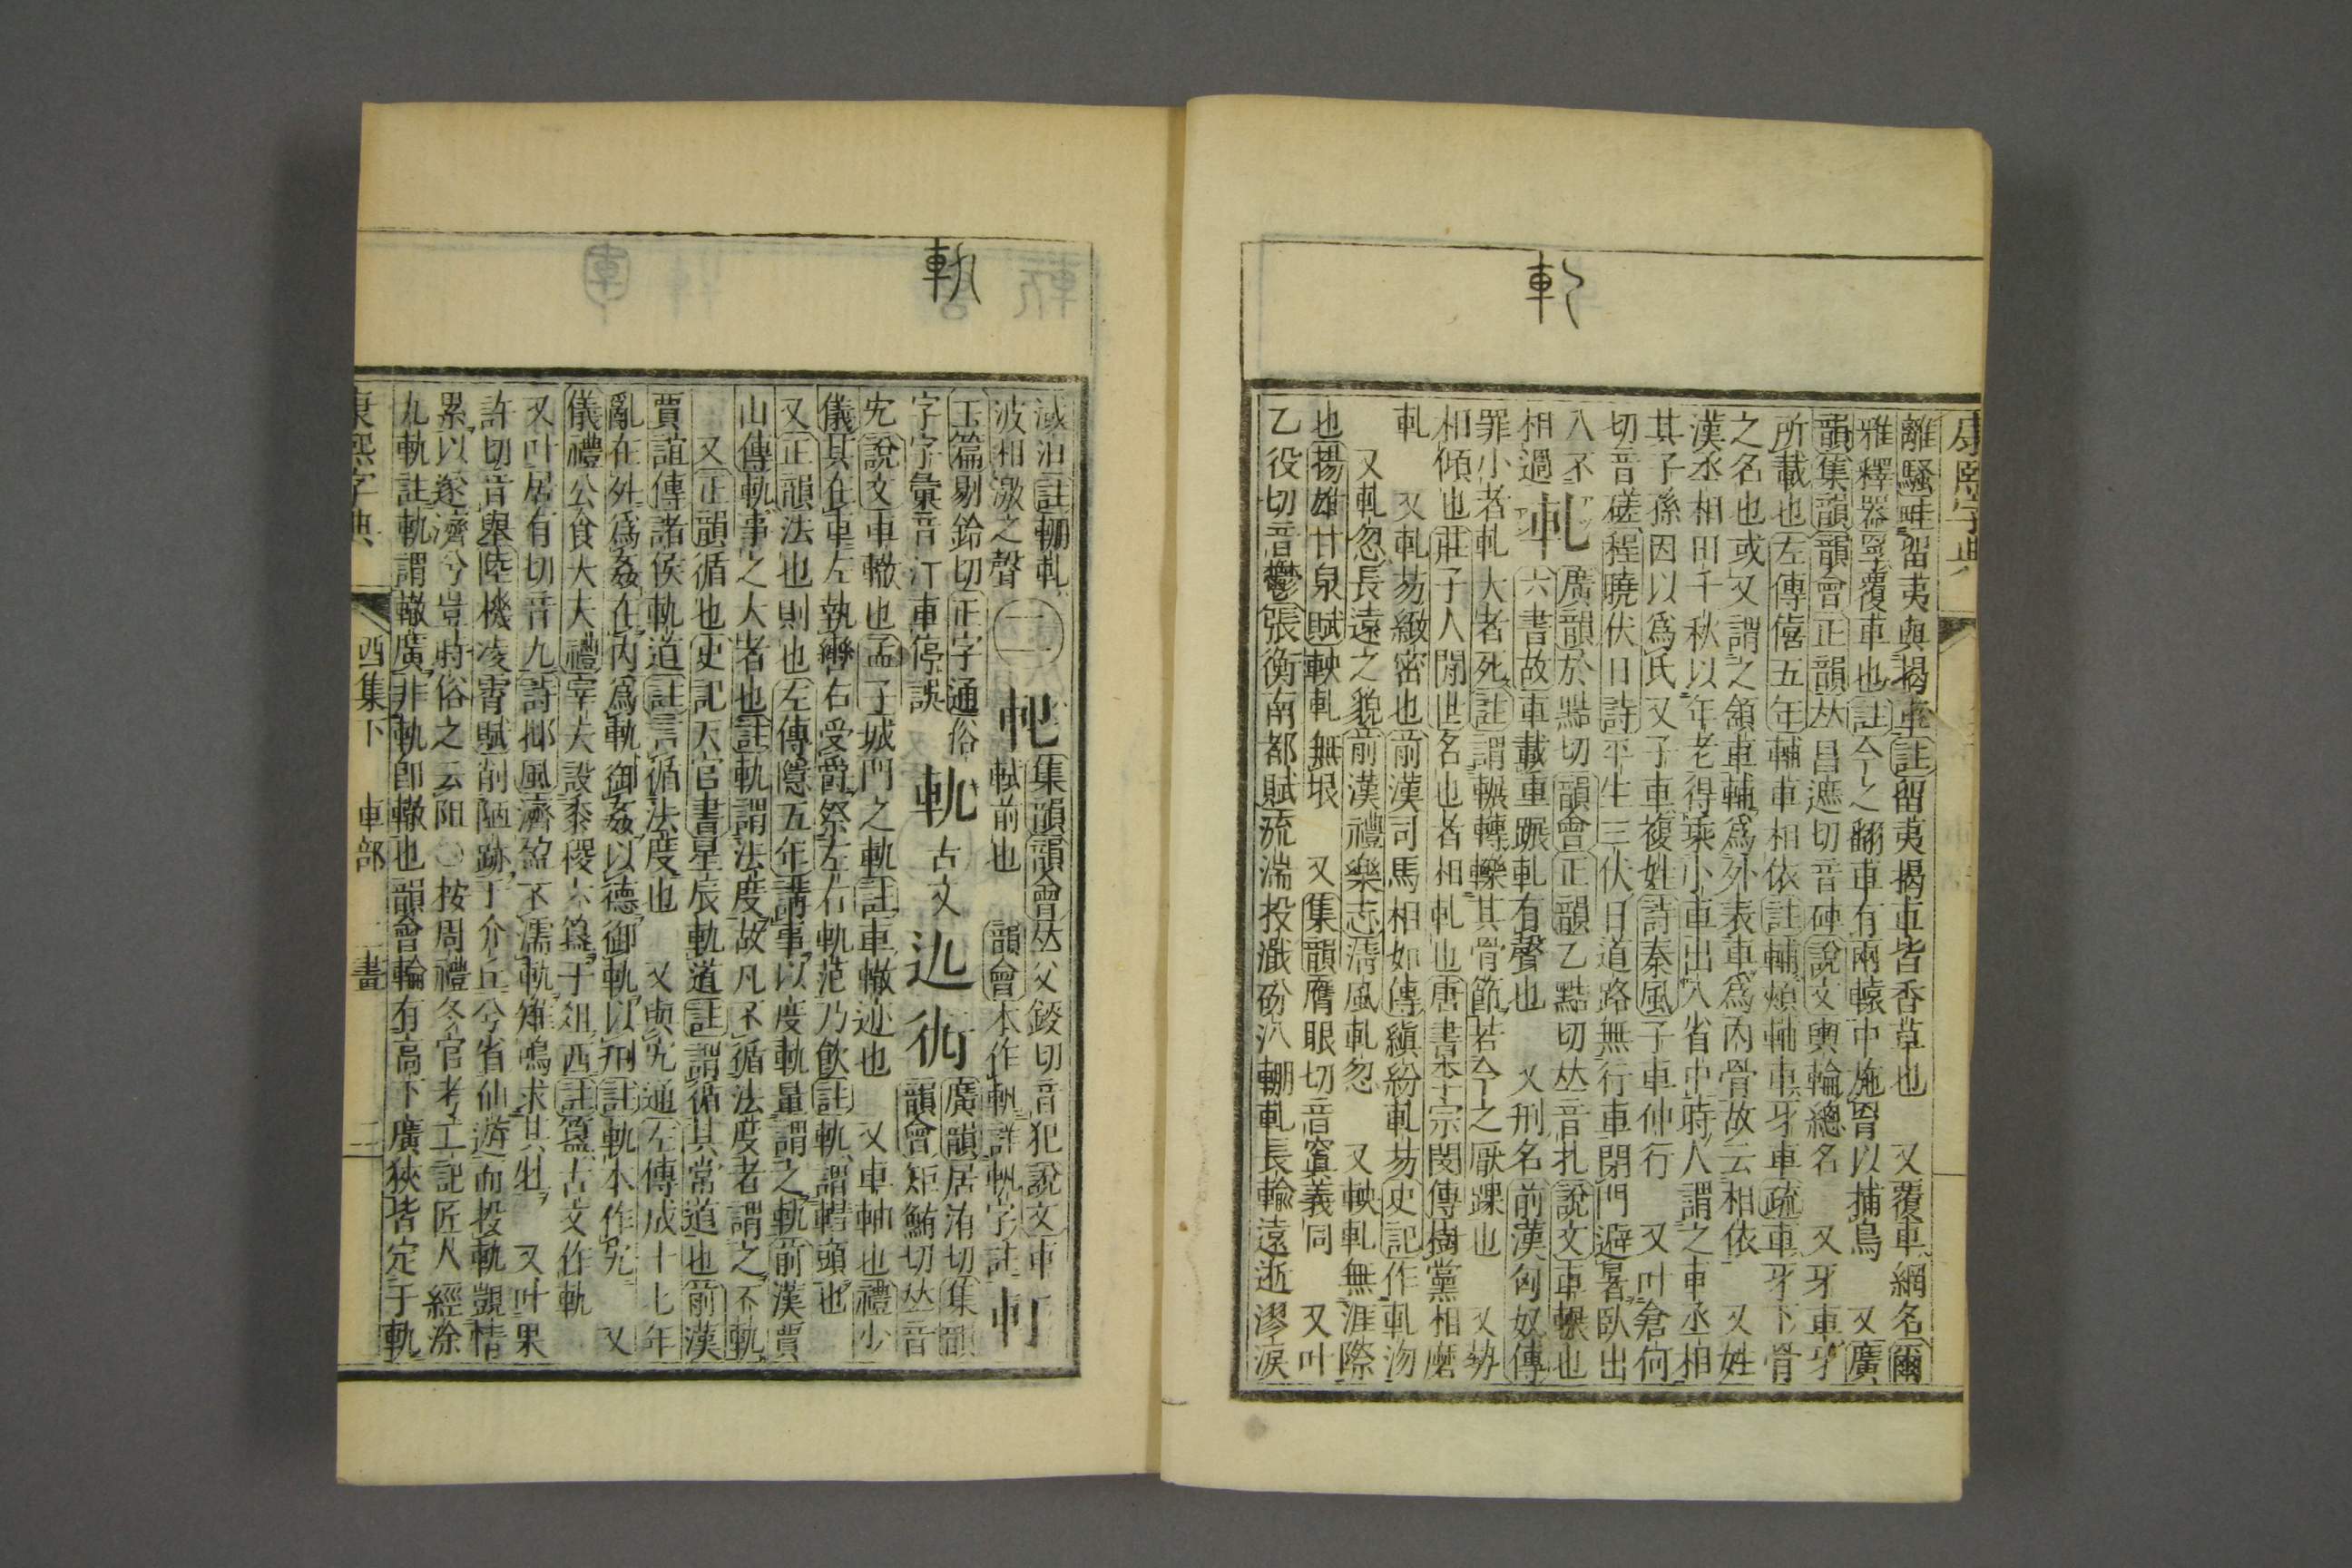 康熙字典
離騷畦留夷與揭車註留夷揭車皆香草也 又覆車網名爾
雅釋器罦覆車也註今之翻車有兩轅中施罥以捕鳥 又廣
韻集韻韻會正韻𠀤昌遮切音硨說文輿輪總名 又牙車牙
所載也左傳僖五年輔車相依註輔頰輔車牙車疏車牙下骨
之名也或又謂之頷車輔爲外表車爲內骨故云相依 又姓
漢丞相田千秋以年老得乘小車出入省中時人謂之車丞相
其子孫因以爲氏又子車複姓詩秦風子車仲行 又叶倉何
切音磋程曉伏日詩平生三伏日道路無行車閉門避暑臥出
入不相過
軋
廣韻於黠切韻會正韻乙黠切𠀤音扎說文車輾也
六書故車載重蹍軋有聲也 又刑名前漢匈奴傳
罪小者軋大者死註謂輾轉轢其骨節若今之厭踝也 又勢
相傾也莊子人閒世名也者相軋也唐書李宗閔傳樹黨相磨
軋 又軋芴緻密也前漢司馬相如傳縝紛軋芴史記作軋沕
又軋忽長遠之貌前漢禮樂志淸風軋忽 又軮軋無涯際
也揚雄甘泉賦軮軋無垠 又集韻膺眼切音䆘義同 又叶
乙役切音鬱張衡南都賦流湍投濈砏汃輣軋長輸遠逝漻淚
淢汨註輣軋
波相激之聲
二
軓
集韻韻會𠀤父錽切音犯說文車
軾前也 韻會本作軓詳軓字註
軒
玉篇剔鈴切正字通俗
字字彙音汀車停誤
軌
古文
𨒃
𧗞
廣韻居洧切集韻
韻會矩鮪切𠀤音
宄說文車轍也孟子城門之軌註車轍迹也 又車軸也禮少
儀其在車左執轡右受爵祭左右軌范乃飮註軌謂轊頭也
又正韻法也則也左傳隱五年講事以度軌量謂之軌前漢賈
山傳軌事之大者也註軌謂法度故凡不循法度者謂之不軌
又正韻循也史記天官書星辰軌道註謂循其常道也前漢
賈誼傳諸侯軌道註言循法度也 又與宄通左傳成十七年
亂在外爲姦在內爲軌御姦以德御軌以刑註軌本作宄 又
儀禮公食大夫禮宰夫設黍稷六簋于俎西註簋古文作軌
又叶居有切音九詩邶風濟盈不濡軌雉鳴求其牡 又叶果
許切音舉陸機凌霄賦削陋跡于介丘兮省仙遊而投軌覬情
累以遂濟兮豈時俗之云阻 按周禮冬官考工記匠人經涂
九軌註軌謂轍廣非軌卽轍也韻會輪有高下廣狹皆定于軌
康熙字典 酉集下 車部 二畫 二